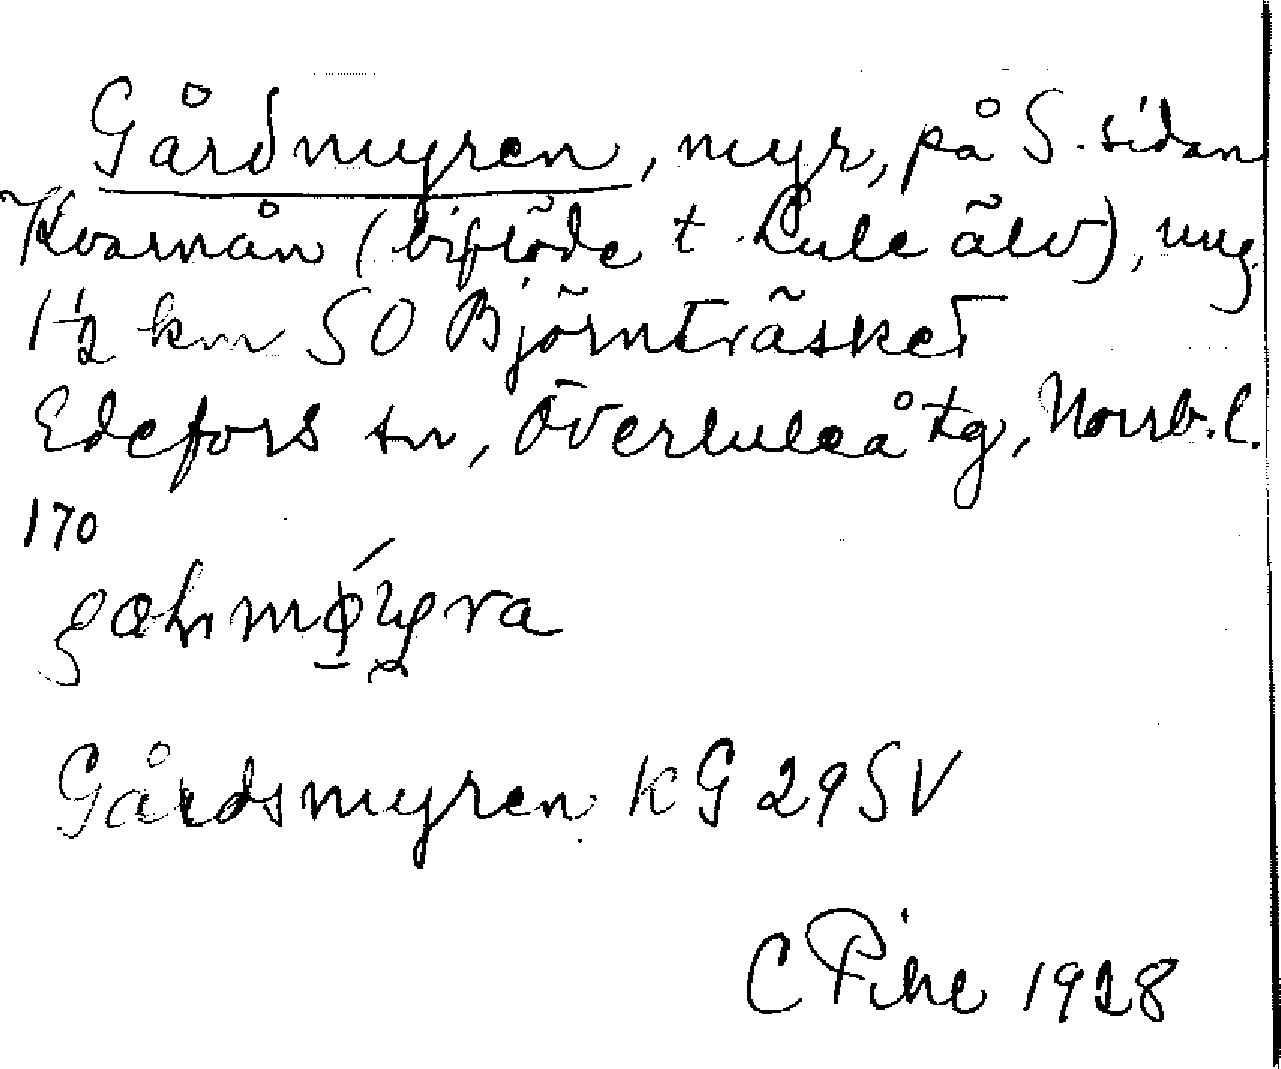 Gårdmyren, myr, på S. sidan
Kvarnån (biflöde t. Lule älv), ung.
1½ km SO Björnträsket
Edefors sn, Överluleå tg, Norrb. l.
170
Gårdsmyren KG 29 SV
C Pihe 1928